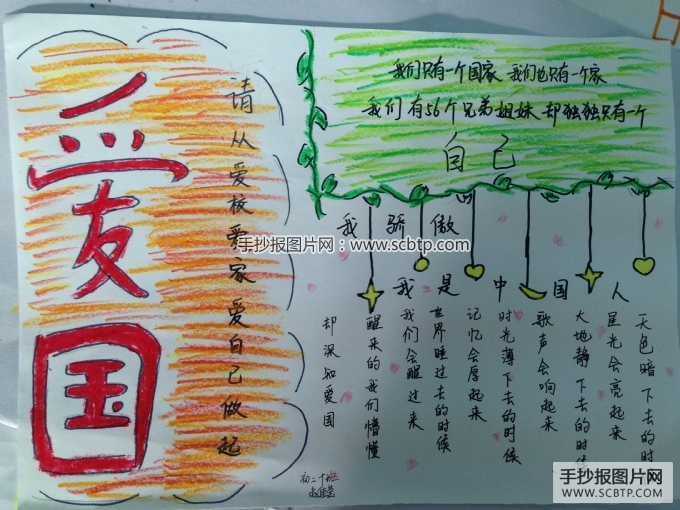 爱国
请从爱校爱家爱自己做起
我们只有一个国家 我们也只有一个家
我们有56个兄弟姐妹 却独独只有一个
自己
我骄傲
手抄报图片网:www.scbtp.com
我是中国人
天色暗下去的时
星光会亮起来
大地静下去的时候
歌声会响起来
时光薄下去的时候
记忆会厚起来
世界睡过去的时候
我们会醒过来
醒来的我们懵懂
却深知爱国
初二十班
手抄报图片网
WWW.SCBTP.COM